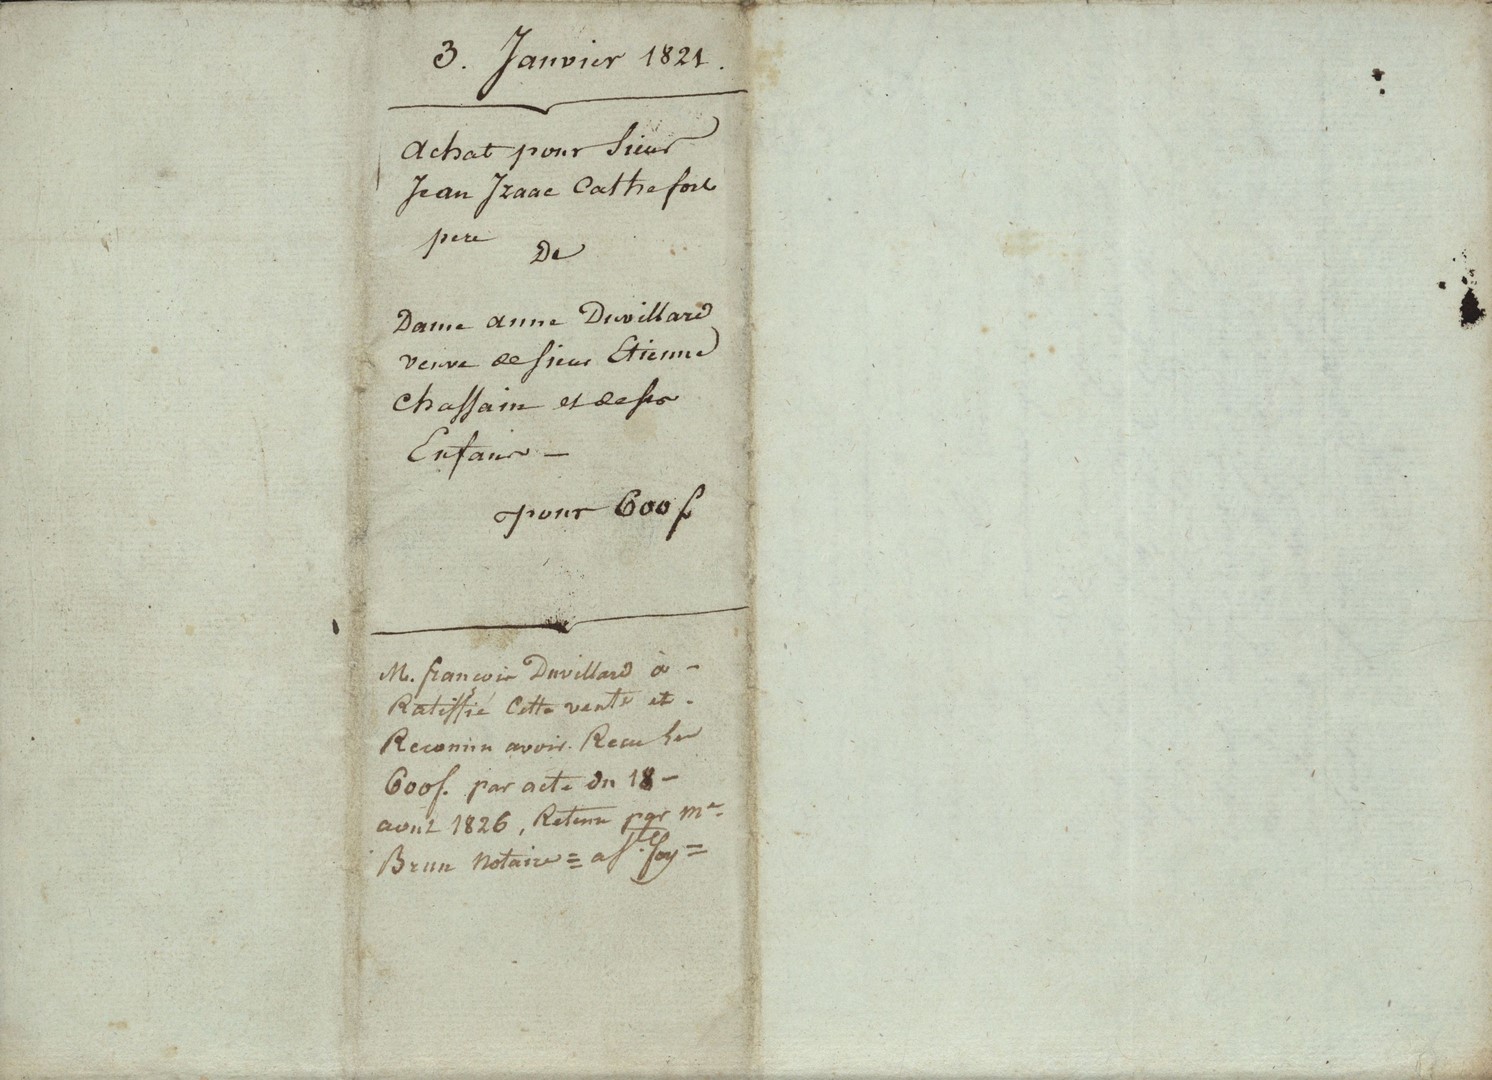 3. Janvier 1821.
Achat pour Sieur
Jean Izaac Cathefort
pere
De
Dame anne Duvillard
veuve de Sieur Etienne
Chassain et de ses
Enfans —
pour 600 f
M. françois Duvillard à -
Ratiffié Cette vente et -
Reconnu avoir Recu les
600 f. par acte du 18 -
aout 1826, Retenu par me
Brun Notaire = a Ste foy =